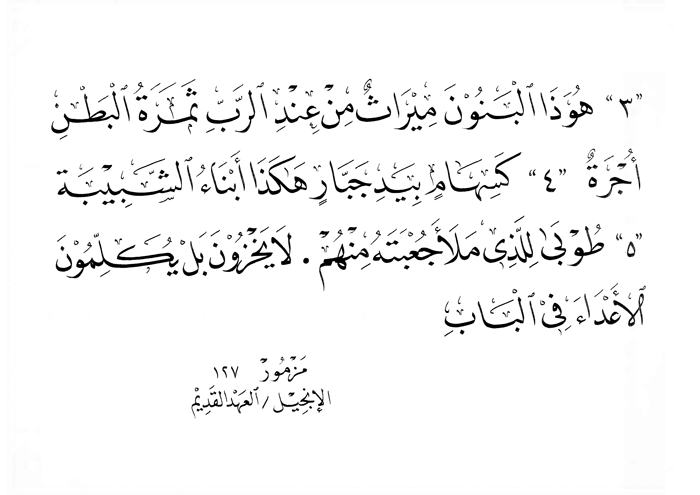 "٣" هُوَذَا الْبَنُوْنَ مِيْرَاثٌ مِنْ عِنْدِ الرَّبِّ ثَمَرَةُ الْبَطْنِ
أُجْرَةٌ "٤" كَسِهَامٍ بِيَدِ جَبَّارٍ هٰكَذَا أَبْنَاءُ الشَّبِيْبَة
"٥" طُوْبَىٰ لِلَّذِى مَلَأَ جُعْبَتَهُ مِنْهُمْ . لَا يَخْزُوْنَ بَلْ يُكَلِّمُوْنَ
الْأَعْدَاءَ فِىْ الْبَابِ
مَزْمُوْرْ ١٢٧
الإنْجِيْل / العَهْدالقَدِيْمْ